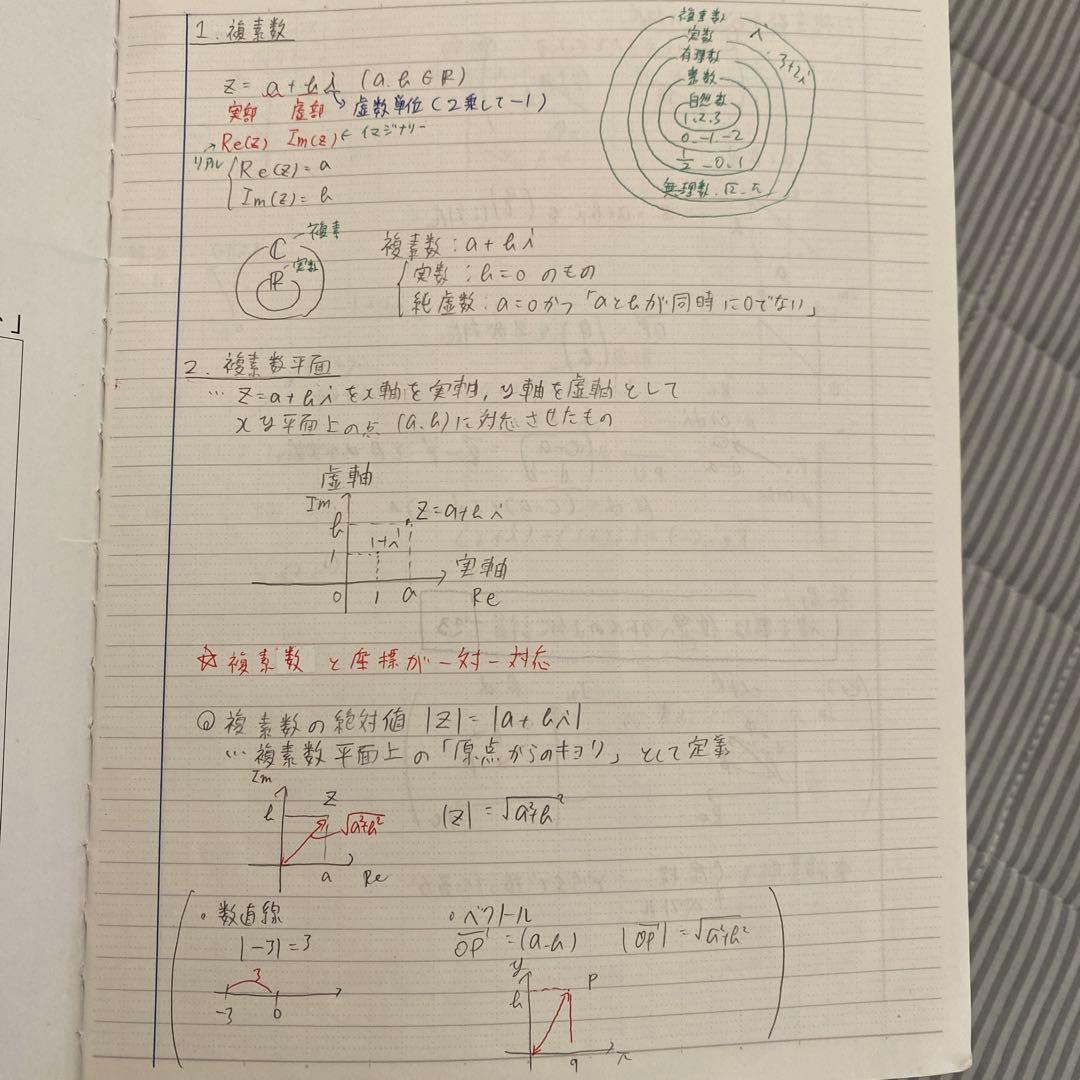 1. 複素数
z = a + b i (a, b ∈ ℝ)
実部 虚部 → 虚数単位 (2乗して-1)
Re(z) Im(z) ← イマジナリー
リアル
Re(z) = a
Im(z) = b
複素数
i
3+2i
実数
有理数
整数
自然数
1, 2, 3
0, -1, -2
1/2
無理数, √2
ℂ 複素
ℝ 実数
複素数 : a + b i
実数 : b = 0 のもの
純虚数 : a=0かつ「aとbが同時に0でない」
2. 複素数平面
… z = a + b i を x軸を実軸, y軸を虚軸として
x y 平面上の点 (a, b) に対応させたもの
虚軸
Im
b
z = a + b i
1+i
1
0 1 a
実軸
Re
☆ 複素数 と 座標が一対一対応
◎ 複素数の絶対値 |z| = |a + b i|
… 複素数平面上の「原点からのキョリ」として定義
Im
b z
√a²+b²
a Re
|z| = √a²+b²
・数直線
|-3| = 3
3
-3 0
・ベクトル
OP = (a, b) |OP| = √a²+b²
y
b P
a x